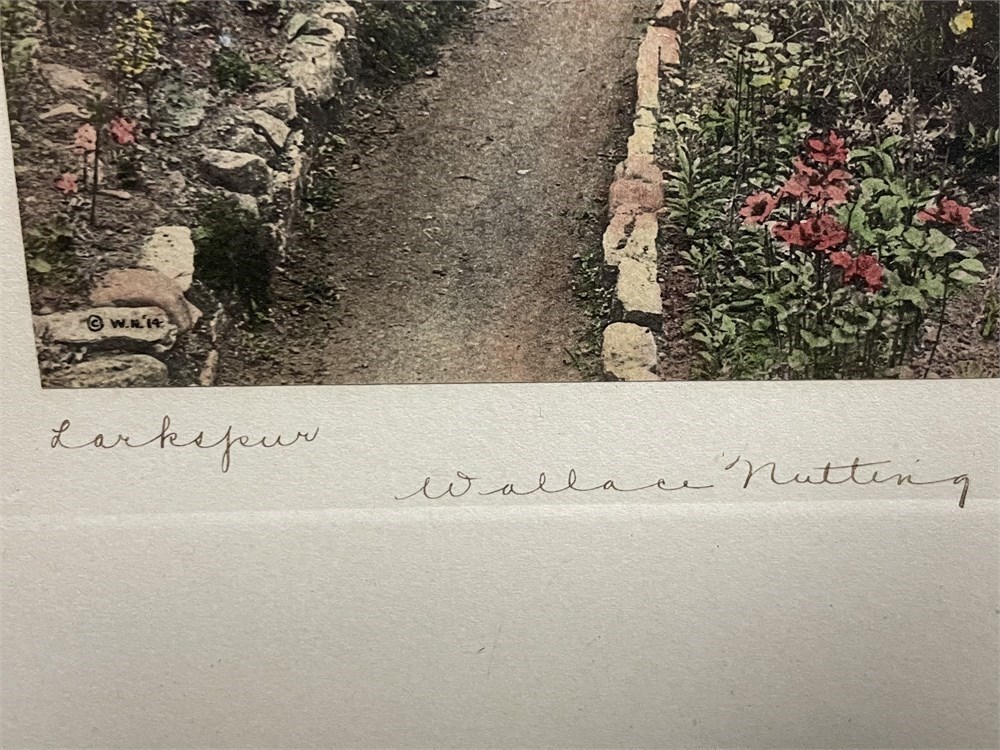 © W.N.'14
Larkspur
Wallace Nutting